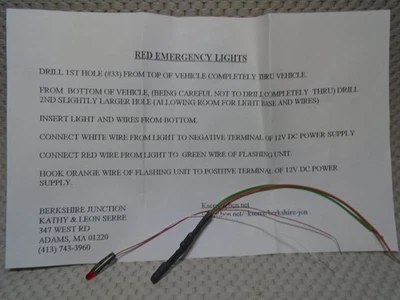 RED EMERGENCY LIGHTS
DRILL 1ST HOLE (#33) FROM TOP OF VEHICLE COMPLETELY THRU VEHICLE.
FROM BOTTOM OF VEHICLE, (BEING CAREFUL NOT TO DRILL COMPLETELY THRU) DRILL
2ND SLIGHTLY LARGER HOLE (ALLOWING ROOM FOR LIGHT BASE AND WIRES)
INSERT LIGHT AND WIRES FROM BOTTOM.
CONNECT WHITE WIRE FROM LIGHT TO NEGATIVE TERMINAL OF 12V DC POWER SUPPLY
CONNECT RED WIRE FROM LIGHT TO GREEN WIRE OF FLASHING UNIT.
HOOK ORANGE WIRE OF FLASHING UNIT TO POSITIVE TERMINAL OF 12V DC POWER
SUPPLY.
BERKSHIRE JUNCTION
KATHY & LEON SERRE
347 WEST RD
ADAMS, MA 01220
(413) 743-3960